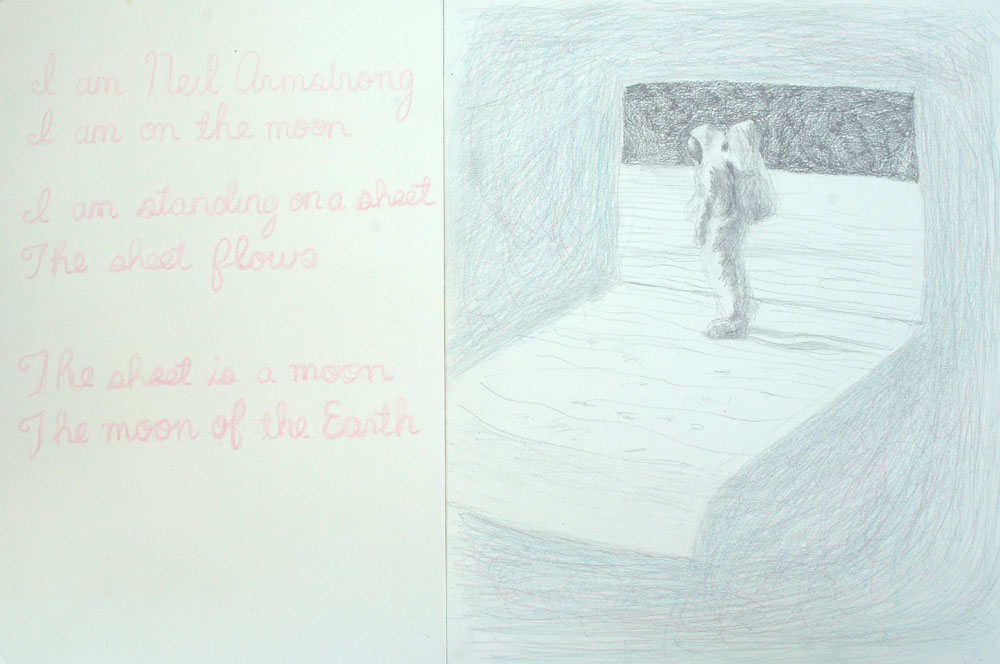 I am Neil Armstrong
I am on the moon
I am standing on a sheet
The sheet flows
The sheet is a moon
The moon of the Earth